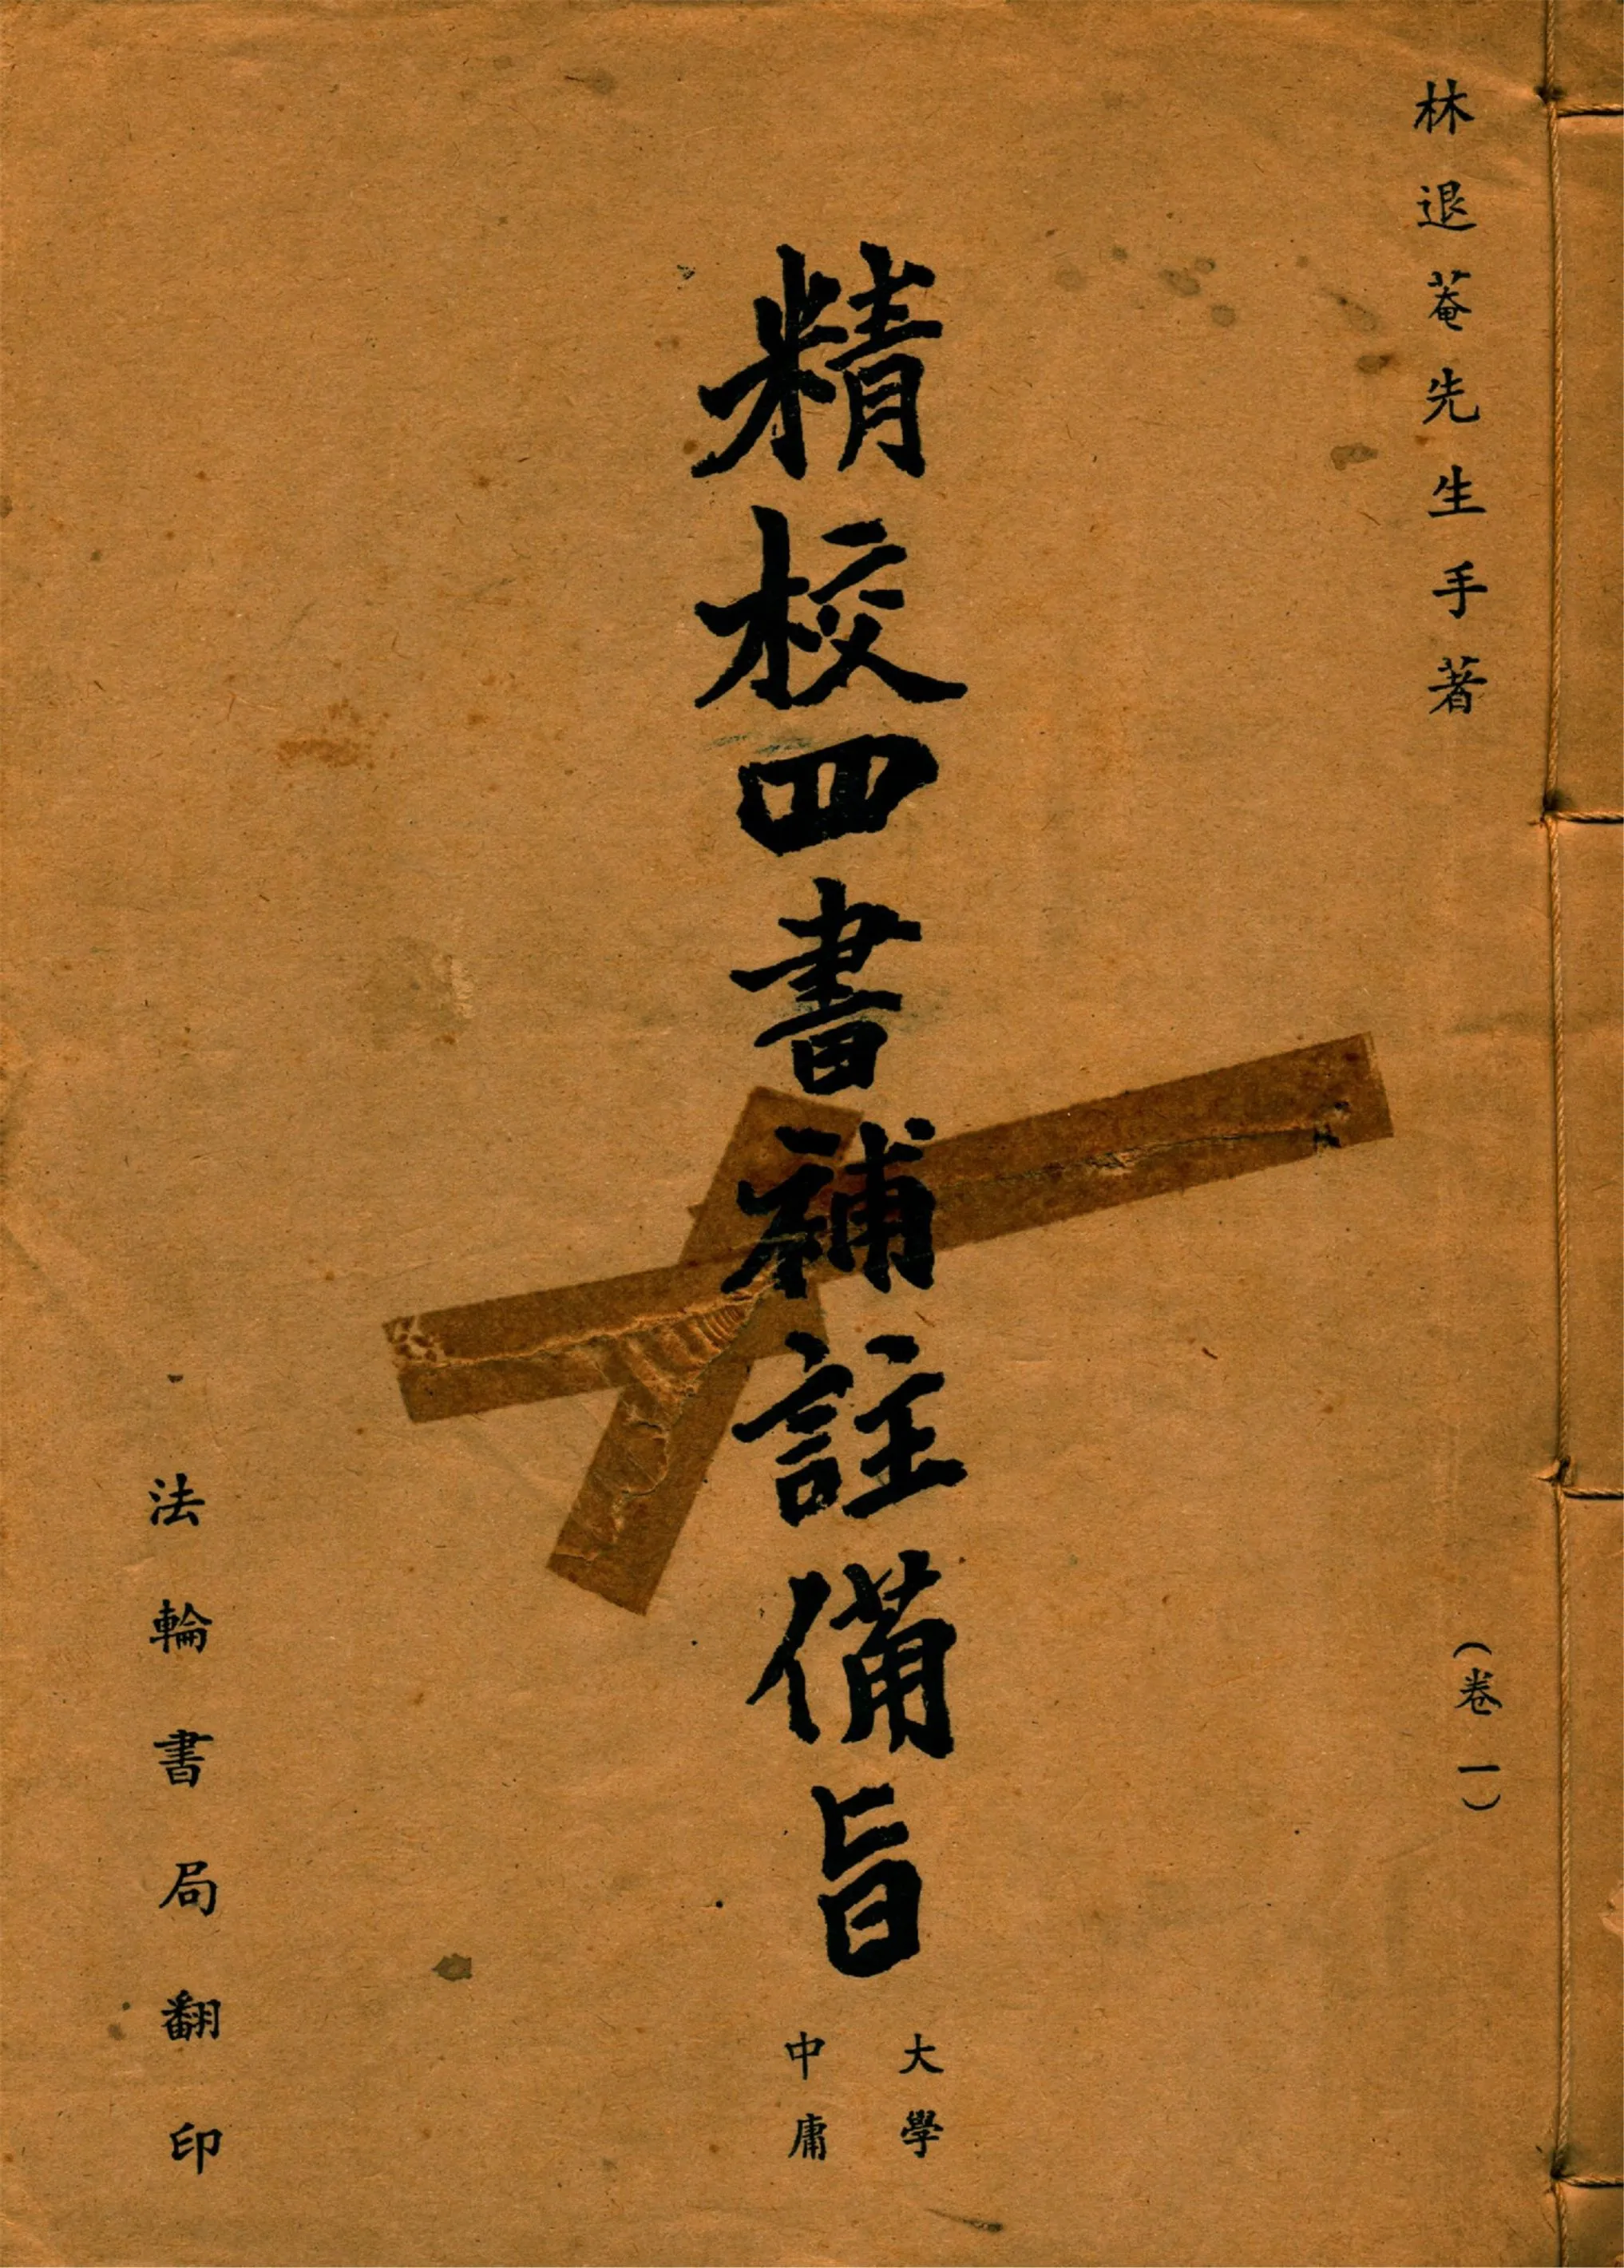 林退菴先生手著
（卷一）
精校四書補註備旨
大學
中庸
法輪書局翻印